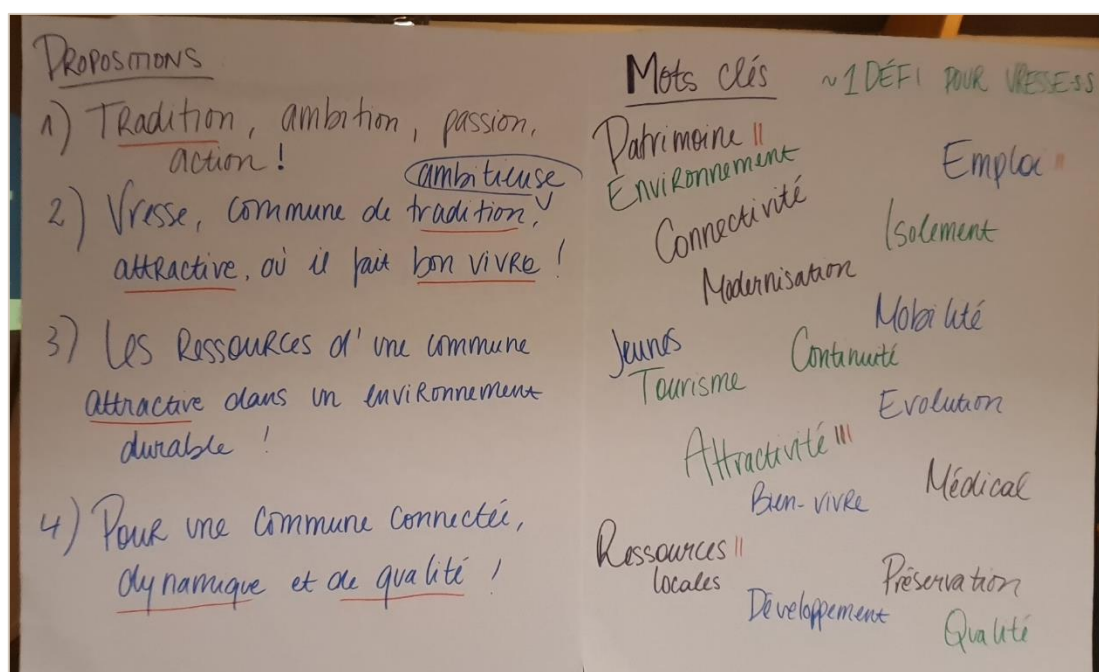 PROPOSITIONS
1) Tradition, ambition, passion,
action !
ambitieuse
2) Vresse, commune de tradition,
attractive, où il fait bon vivre !
3) Les Ressources d'une commune
attractive dans un environnement
durable !
4) Pour une commune connectée,
dynamique et de qualité !
Mots clés ~ 1 DÉFI POUR VRESSE-SS
Patrimoine II
Environnement
Emploi II
Connectivité
Isolement
Modernisation
Mobilité
Jeunes
Tourisme
Continuité
Evolution
Attractivité III
Bien-vivre
Médical
Ressources II
locales
Développement
Préservation
Qualité